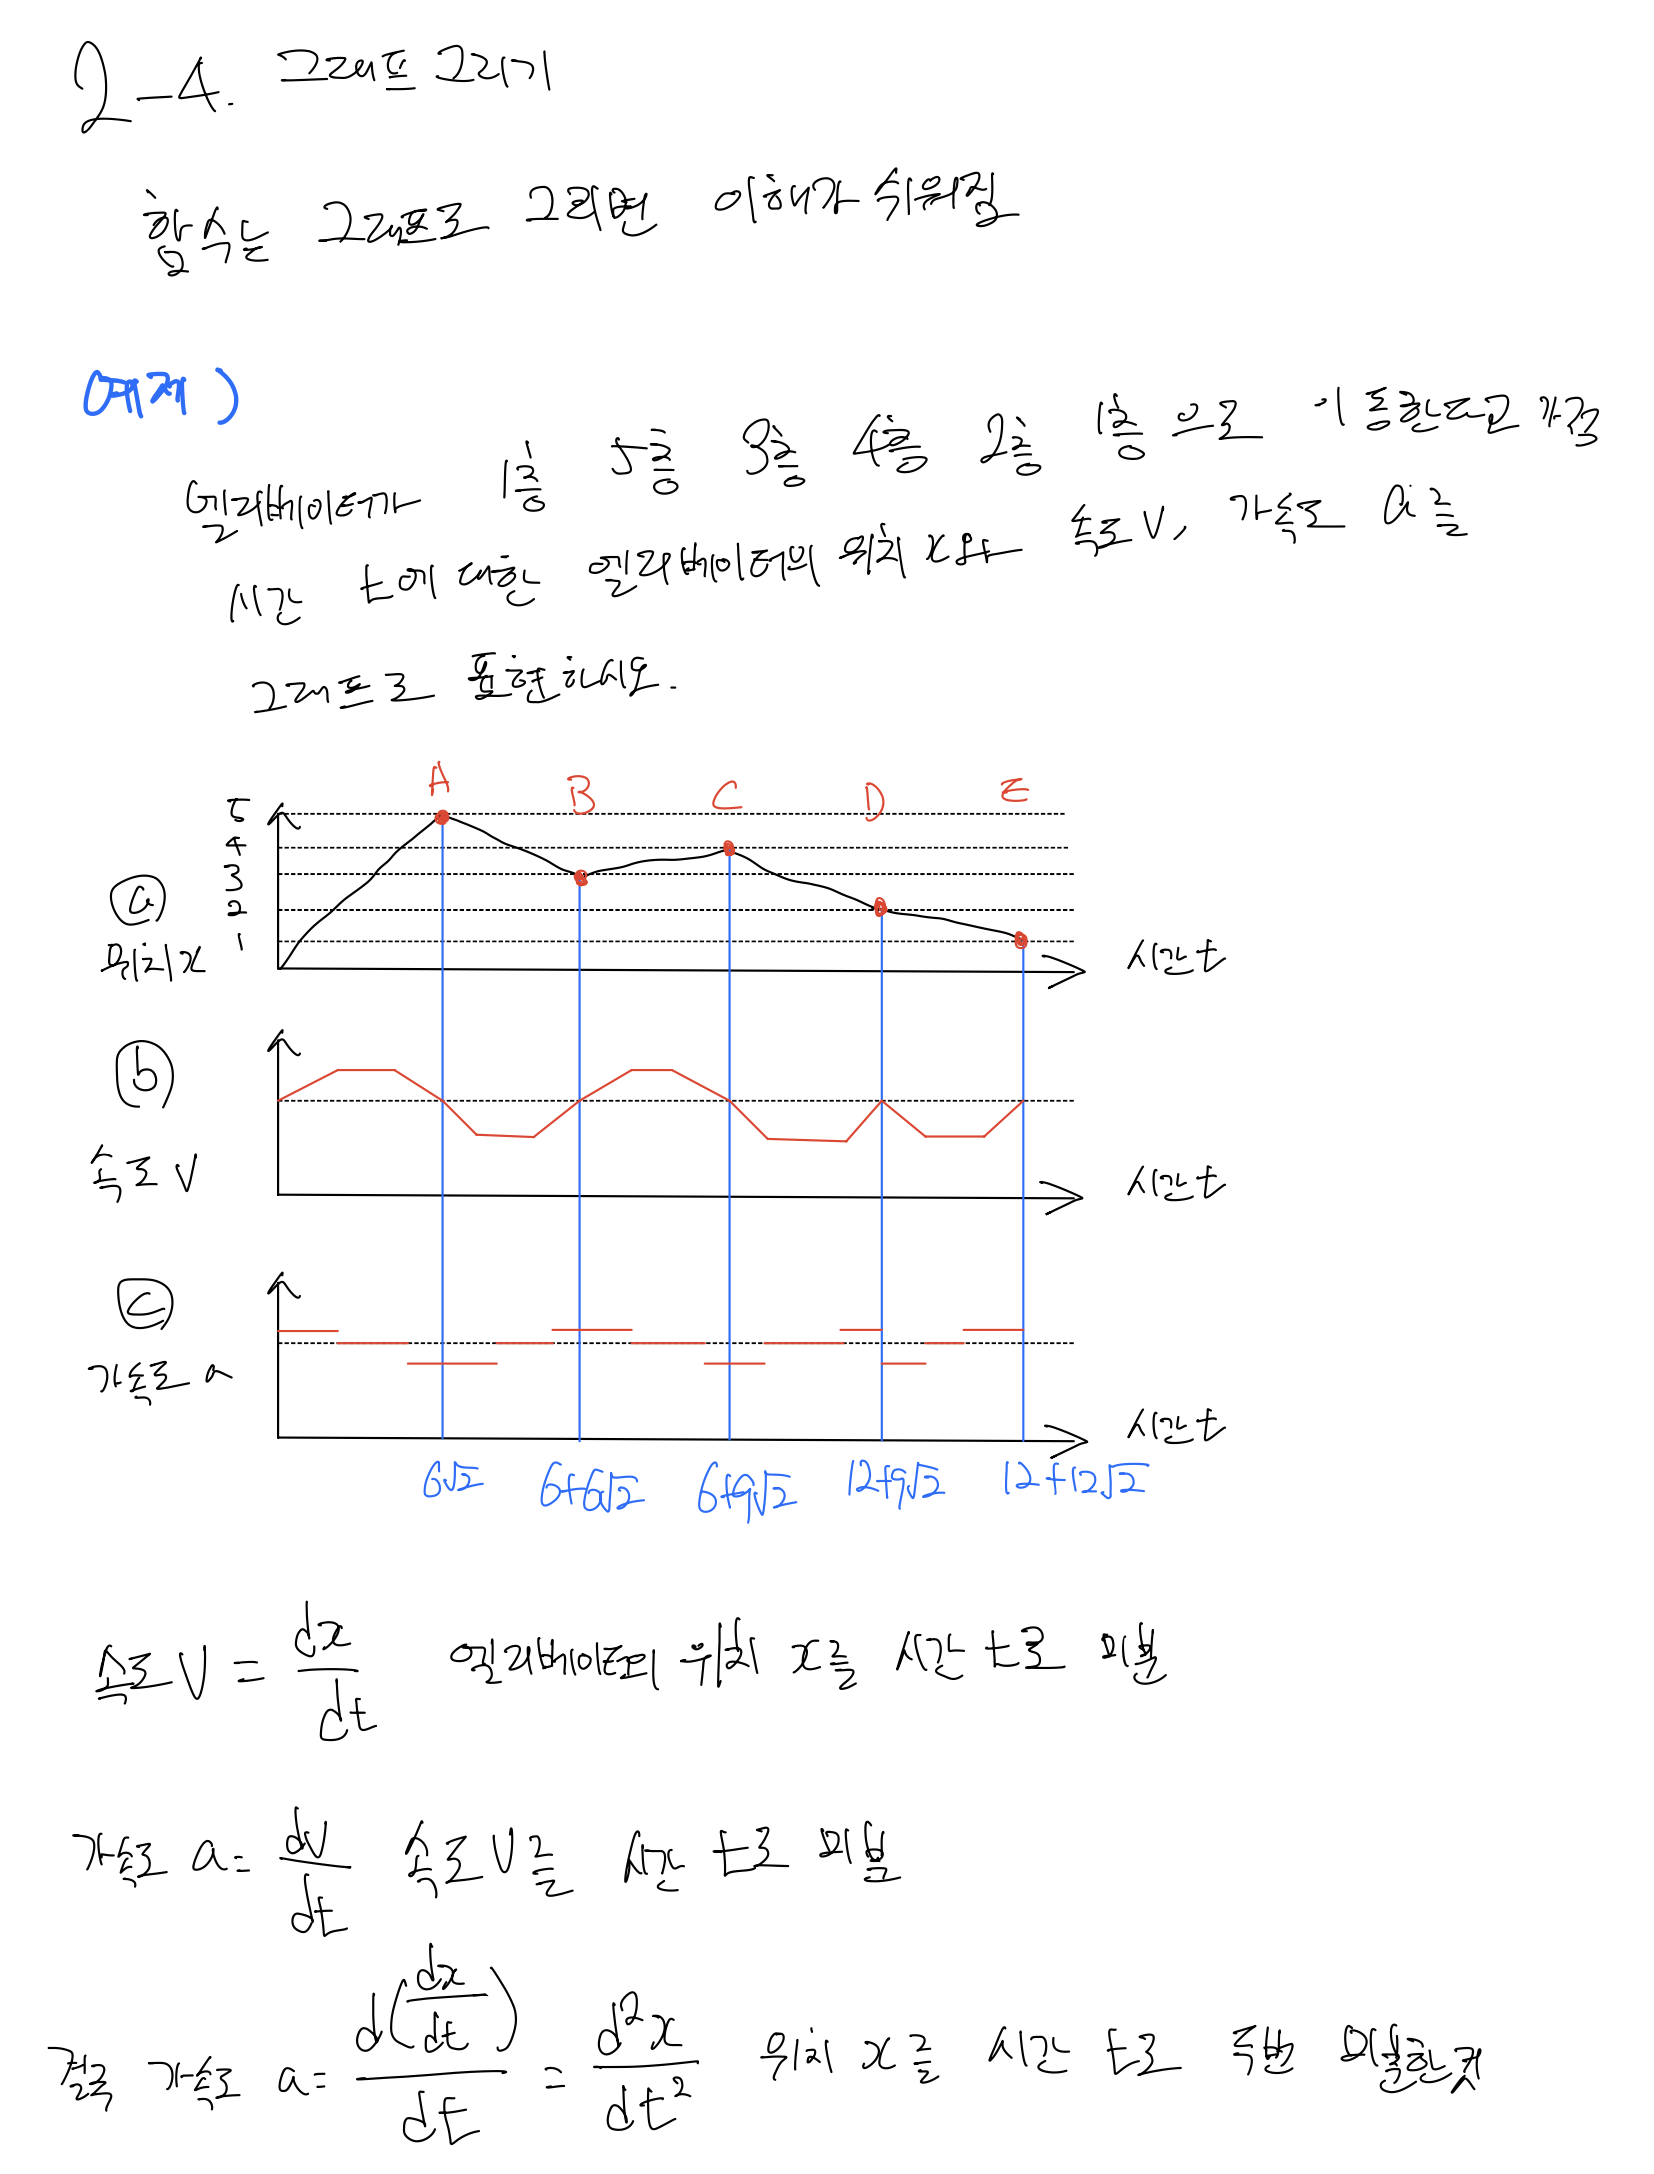 2-4. 그래프 그리기
함수는 그래프로 그리면 이해가 쉬워짐
예제)
엘리베이터가 1층 5층 3층 4층 2층 1층 으로 이동한다고 가정
시간 t에 대한 엘리베이터의 위치 x와 속도 V, 가속도 a를
그래프로 표현하시오.
A B C D E
5
4
3
2
1
ⓐ
위치 x
시간 t
ⓑ
속도 V
시간 t
ⓒ
가속도 a
시간 t
6√2 6+6√2 6+9√2 12+9√2 12+12√2
속도 V = dx/dt 엘리베이터의 위치 x를 시간 t로 미분
가속도 a = dv/dt 속도 V를 시간 t로 미분
결국 가속도 a = d(dx/dt)/dt = d²x/dt² 위치 x를 시간 t로 두번 미분한 것